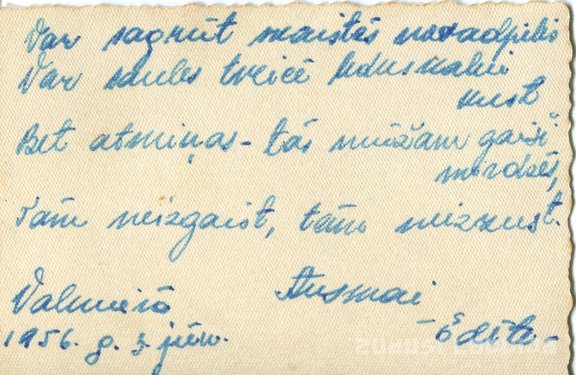 Var sagrūt skaistās 
Var saules tveicē ledus kalni
kust
Bet atmiņas - tās mūžam gaiši
mirdzēs,
Tām neizgaist, tām neizkust.
Valmierā Ausmai
1956. g. 3. jūn. - Edīte -